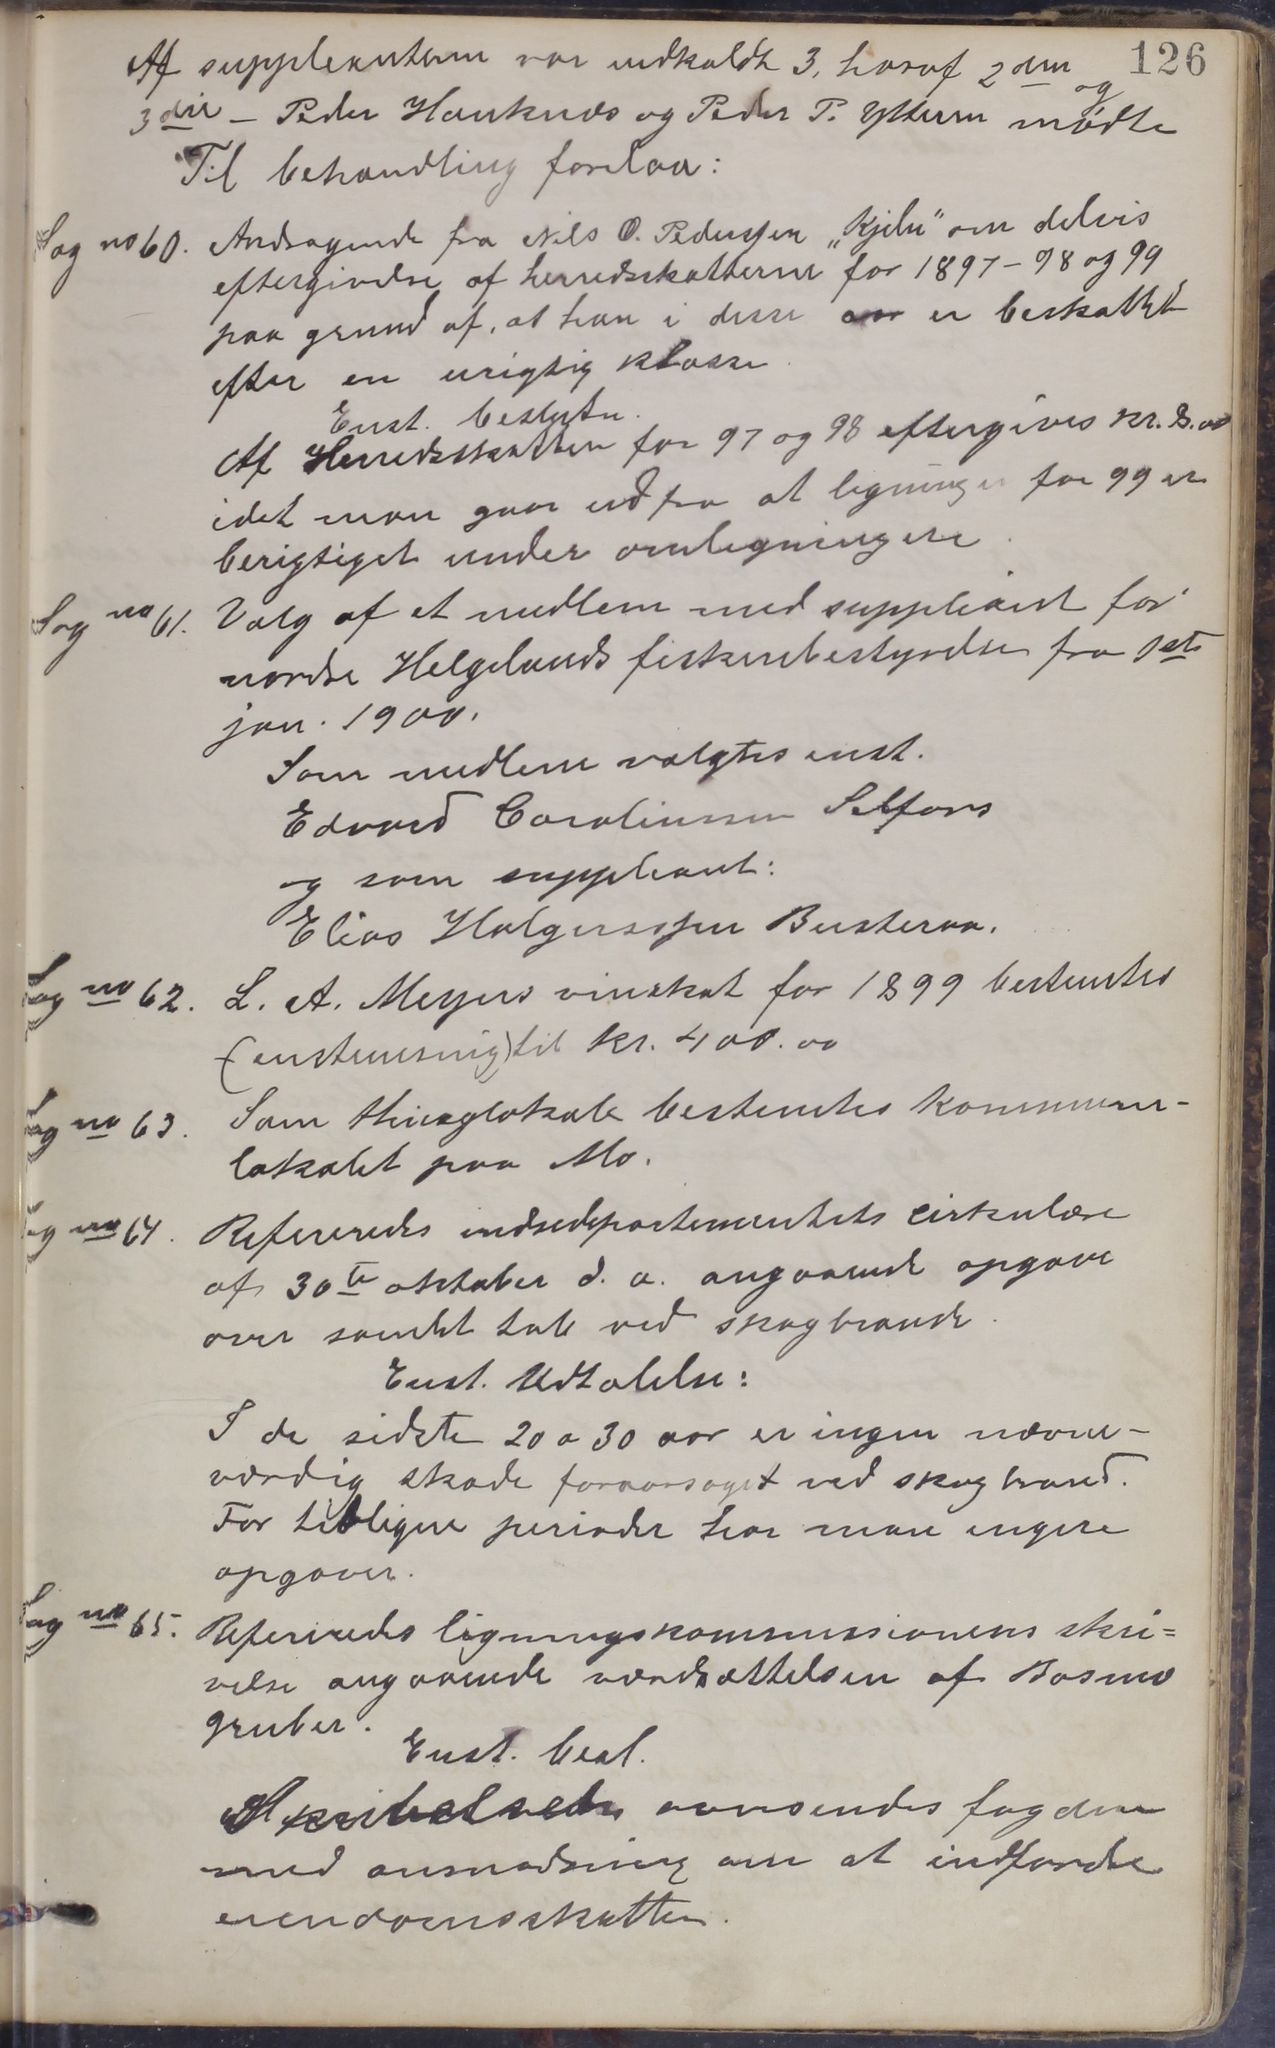 126
Af suppleanterne var indkaldt 3, hvoraf 2den og
3die – Peder Hauknæs og Peder P. Ytteren mødte
Til behandling forelaa:
Sag no 60. Andragende fra Nils O. Pederssen „Kjelen" om delvis
eftergivelse af herredsskatterne for 1897–98 og 99
paa grund af, at han i disse aar er beskattet
efter en urigtig klasse.
Enst. beslutn.
Af Herredsskatten for 97 og 98 eftergives kr. 8.00
idet man gaar ud fra at ligningen for 99 er
berigtiget under omligningen.
Sag no 61. Valg af et medlem med suppleant for
nordre Helgelands fiskeribestyrelse fra 1ste
jan. 1900.
Som medlem valgtes enst.
Edvard Caroliussen Selfors
og som suppleant:
Elias Holgerssen Busteraa.
Sag no 62. L. A. Meyers vinskat for 1899 bestemtes
(enstemmig) til kr. 400.00
Sag no 63. Som thinglokale bestemtes kommune-
lokalet paa Mo.
Sag no 64. Refereredes indredepartementets cirkulære
af 30te oktober d. a. angaaende opgave
over samlet tab ved skogbrande.
Enst. Udtalelse:
I de sidste 20 a 30 aar er ingen nævne-
værdig skade foraarsaget ved skogbrand.
For tidligere perioder har man ingen
opgaver.
Sag no 65. Refereredes ligningskommissionens skri=
velse angaaende værdsættelsen af Bosmo
gruber.
Enst. besl.
Skrivelsen oversendes fogden
med anmodning om at indfordre
eiendomsskatten.